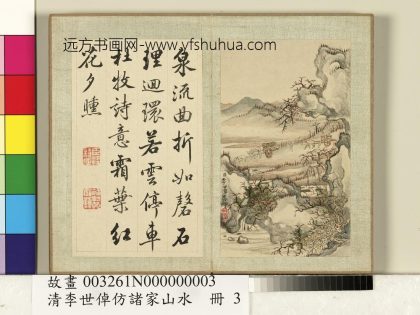 远方书画网--www.yfshuhua.com
泉流曲折如磬石
理迴環若雲停車
杜牧詩意霜葉紅
花夕曛
故畫 003261N000000003
清李世倬仿諸家山水 冊 3